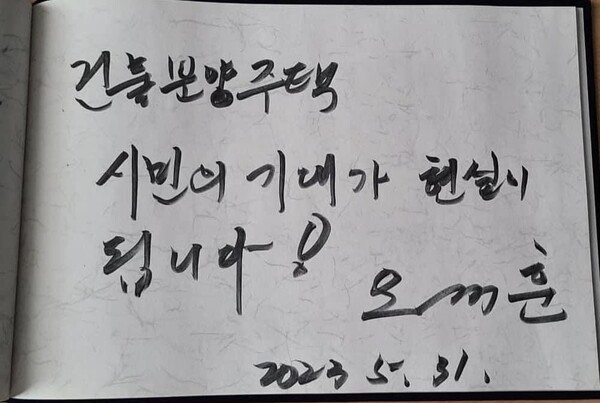 건물분양주택
시민의 기대가 현실이
됩니다!
오세훈
2023 5. 31.